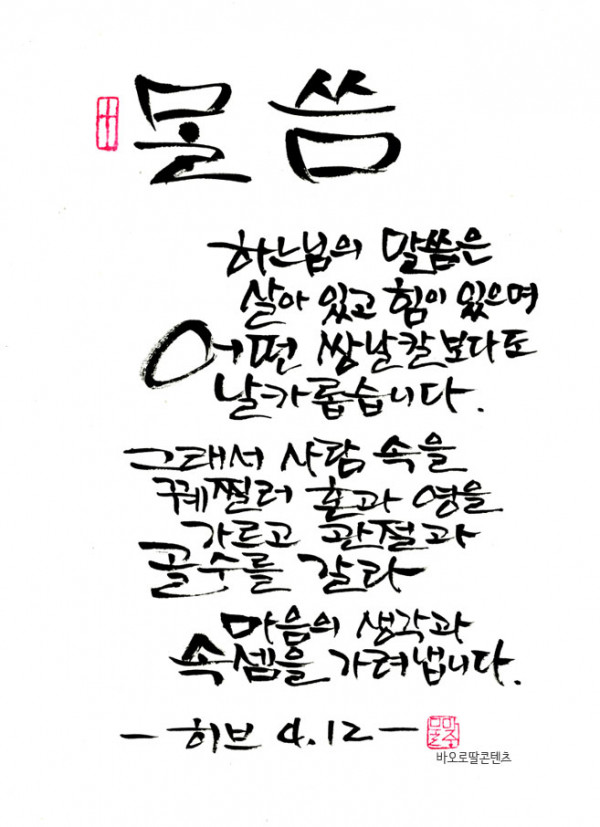 말씀
하느님의 말씀은
살아 있고 힘이 있으며
어떤 쌍날칼보다도
날카롭습니다.
그래서 사람 속을
꿰찔러 혼과 영을
가르고 관절과
골수를 갈라
마음의 생각과
속셈을 가려냅니다.
- 히브 4.12 -
바오로딸콘텐츠